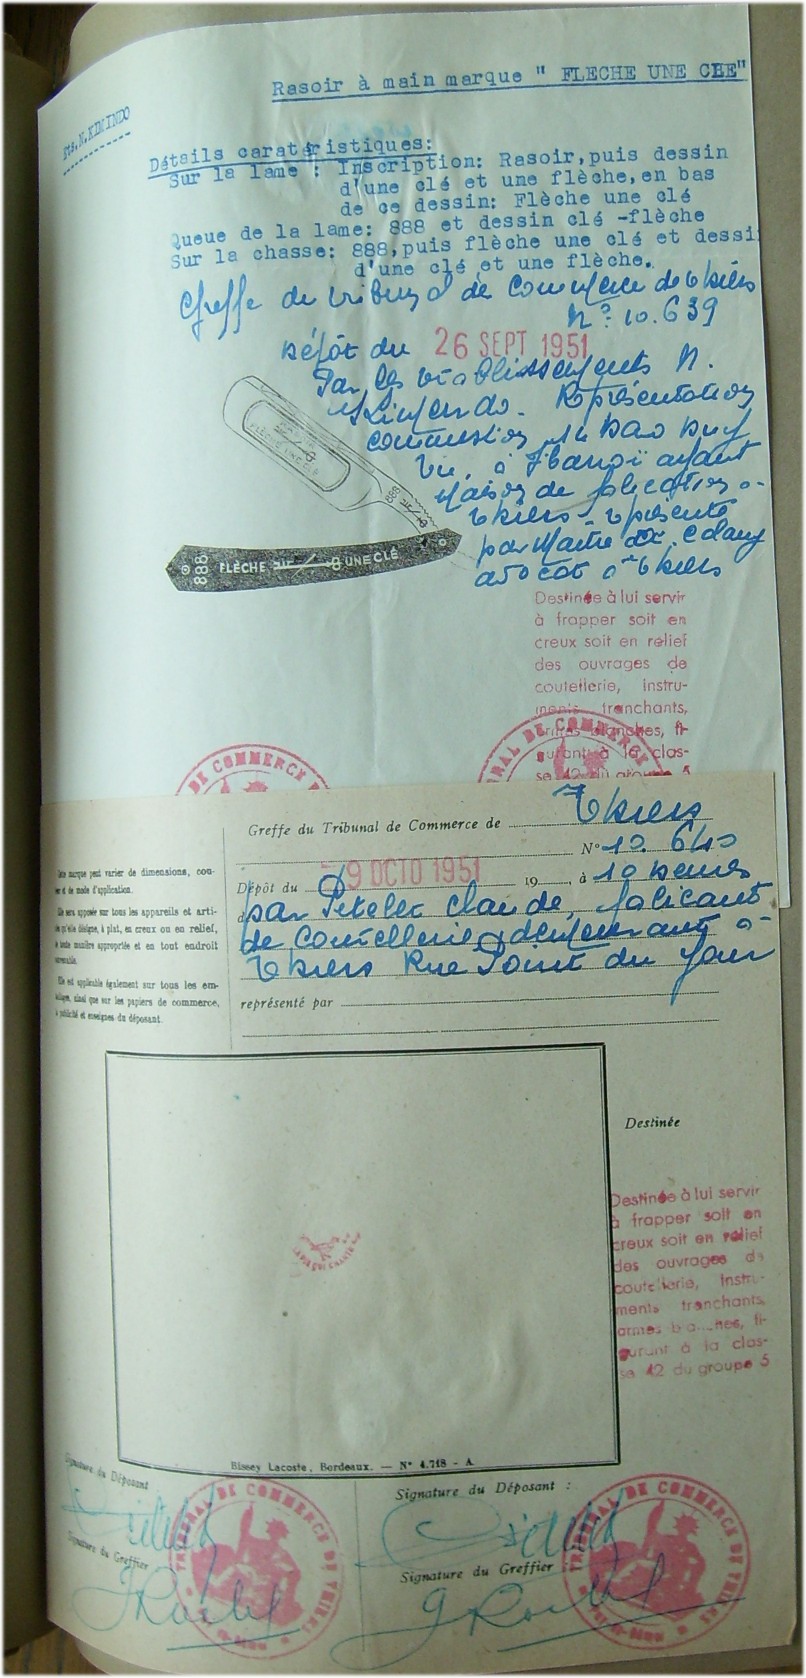 Rasoir à main marque " FLECHE UNE CLE"
Ets.N.KIMINDO
Détails caratéristiques:
Sur la lame : Inscription: Rasoir,puis dessin
d'une clé et une flèche,en bas
de ce dessin: Flèche une clé
Queue de la lame: 888 et dessin clé -flèche
Sur la chasse: 888,puis flèche une clé et dessi
d'une clé et une flèche.
Greffe du tribunal de commerce de Thiers
N° 10.639
Dépôt du 26 SEPT 1951
Par les établissements N.
Représentation
commission
à Hanoï ayant
Maison de
Thiers
par Maître
avocat à Thiers
FLÈCHE UNE CLÉ
888
888 FLÈCHE UNE CLÉ
Destinée à lui servir
à frapper soit en
creux soit en relief
des ouvrages de
coutellerie, instru-
ments tranchants,
armes blanches, fi-
gurant à la clas-
se 42 du groupe 5
DE COMMERCE D
NAL DE COMMERCE
Greffe du Tribunal de Commerce de Thiers
N° 10.640
Dépôt du 9 OCTO 1951 19 , à 10 heures
par Pitelet Claude, fabricant
de Coutellerie, demeurant à
Thiers Rue Point du Jour
représenté par
Cette marque peut varier de dimensions, cou-
leur et de mode d'application.
Elle sera apposée sur tous les appareils et arti-
cles qu'elle désigne, à plat, en creux ou en relief,
de toute manière appropriée et en tout endroit
convenable.
Elle est applicable également sur tous les em-
ballages, ainsi que sur les papiers de commerce,
la publicité et enseignes du déposant.
Destinée
Destinée à lui servir
à frapper soit en
creux soit en relief
des ouvrages de
coutellerie, instru-
ments tranchants,
armes blanches, fi-
gurant à la clas-
se 42 du groupe 5
Bissey Lacoste, Bordeaux. — N° 4.718 - A.
Signature du Déposant
Signature du Greffier
TRIBUNAL DE COMMERCE DE THIERS
Signature du Déposant :
Signature du Greffier
TRIBUNAL DE COMMERCE DE THIERS